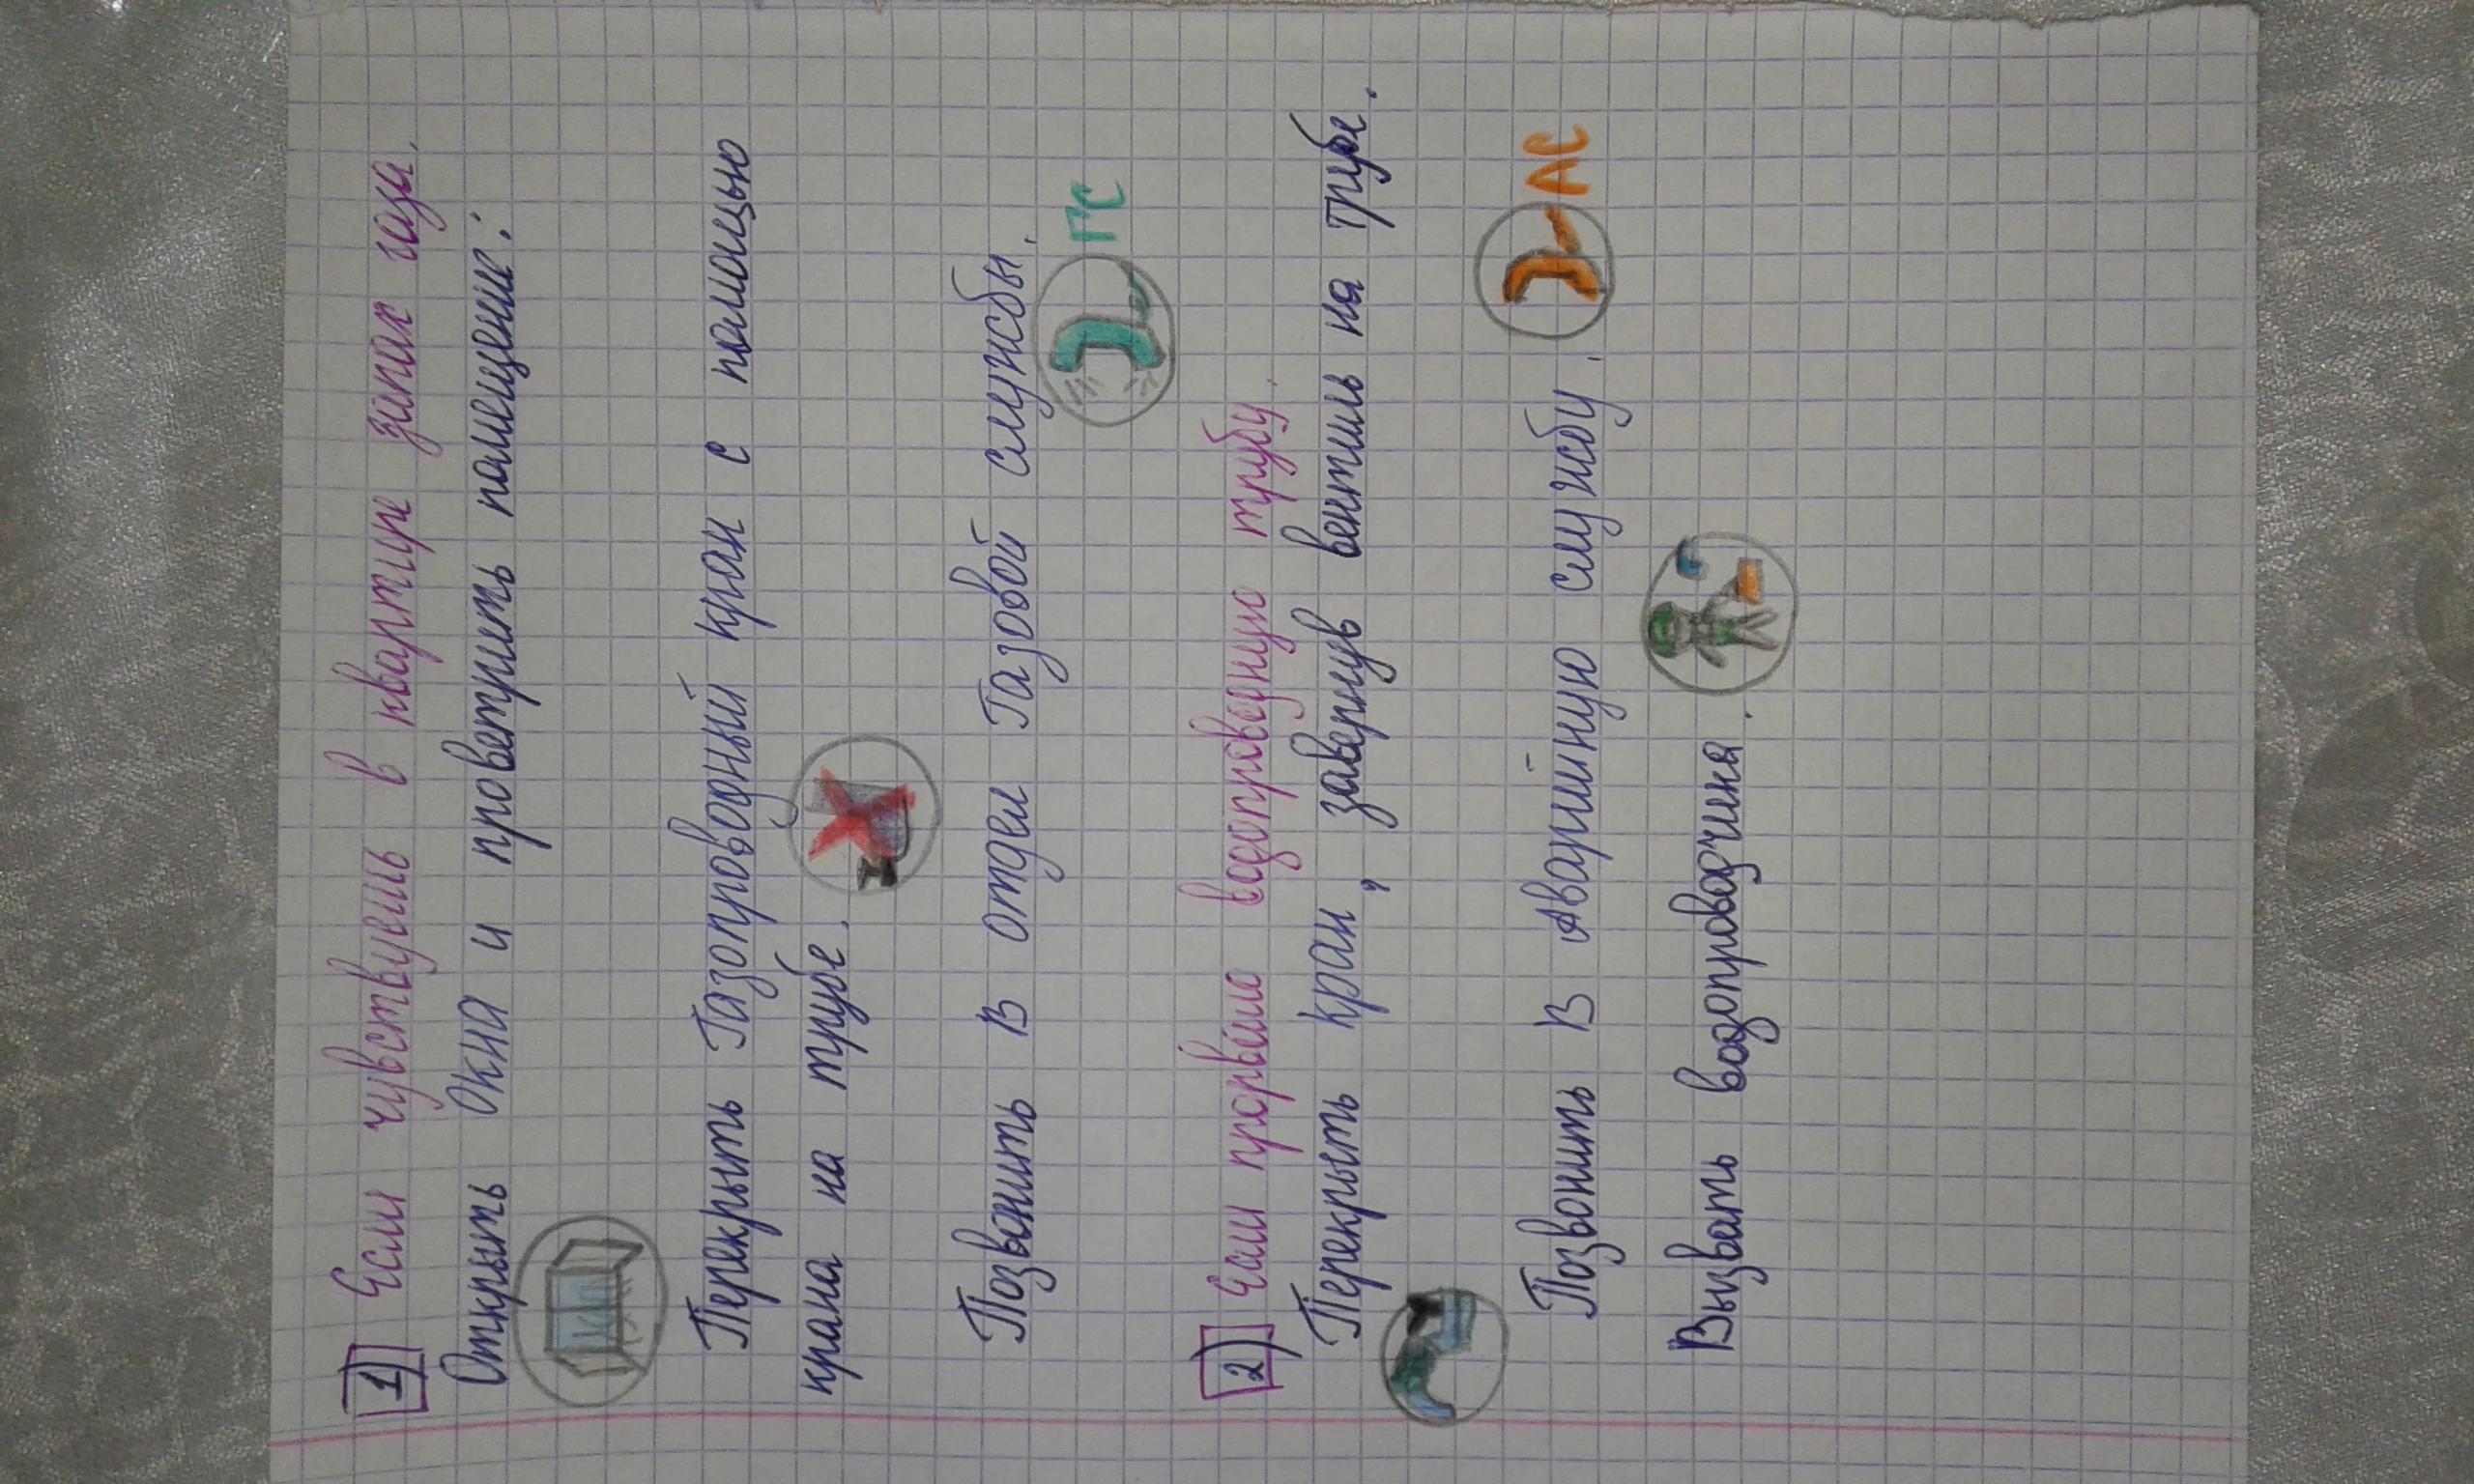 1) Если чувствуешь в квартире запах газа.
Открыть Окна и проветрить помещение.
Перекрыть Газопроводный кран с помощью
крана на трубе.
Позвонить в отдел Газовой службы.
ГС
2) Если прорвёло водопроводную трубу.
Перекрыть кран, завернув вентиль на трубе.
Позвонить в Аварийную службу.
АС
Вызвать водопроводчика.